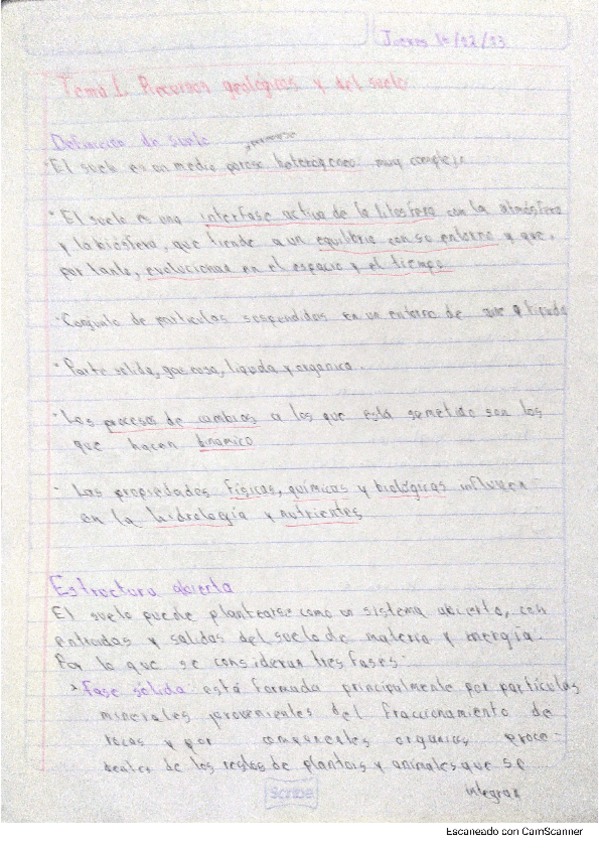 Jueves 16/02/23
Tema 1. Recursos geológicos y del suelo.
Definición de suelo
El suelo es un medio poroso heterogéneo muy complejo
• El suelo es una interfase activa de la litosfera con la atmósfera
y la biósfera, que tiende a un equilibrio con su entorno y que,
por tanto, evoluciona en el espacio y el tiempo
• Conjunto de partículas suspendidas en un entorno de aire y líquido
• Parte solida, gaseosa, liquida y organica.
• Los procesos de cambios a los que está sometido son los
que hacen dinamico
- Las propiedades físicas, químicas y biológicas influyen
en la hidrología y nutrientes
Estructura abierta
El suelo puede plantearse como un sistema abierto, con
entradas y salidas del suelo de materia y energía.
Por lo que se consideran tres fases:
Fase sólida: está formada principalmente por partículas
minerales provenientes del fraccionamiento de
rocas y por componentes organicos proce-
dentes de los restos de plantas y animales que se
integran
Scribe
Escaneado con CamScanner